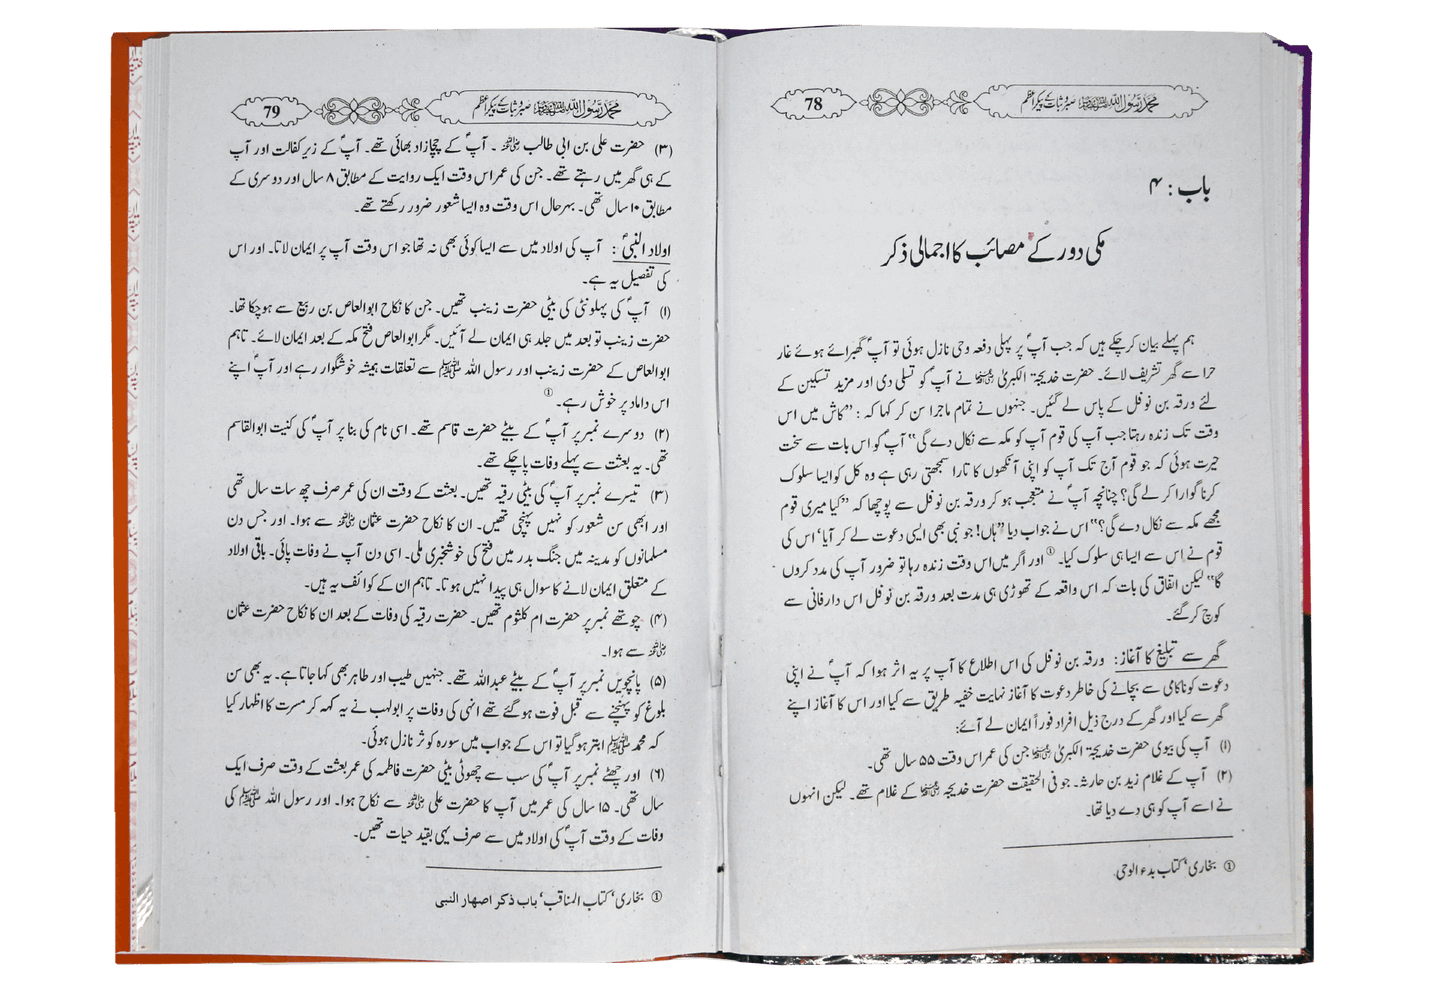 محمد رسول اللہ ﷺ صبر و ثبات کے پیکر اعظم
78
باب : ۴
مکی دور کے مصائب کا اجمالی ذکر
ہم پہلے بیان کرچکے ہیں کہ جب آپؐ پر پہلی دفعہ وحی نازل ہوئی تو آپؐ گھبرائے ہوئے غار
حرا سے گھر تشریف لائے۔ حضرت خدیجۃ الکبریٰ رضی اللہ عنہا نے آپؐ کو تسلی دی اور مزید تسکین کے
لئے ورقہ بن نوفل کے پاس لے گئیں۔ جنہوں نے تمام ماجرا سن کر کہا کہ : ”کاش میں اس
وقت تک زندہ رہتا جب آپ کی قوم آپ کو مکہ سے نکال دے گی“ آپؐ کو اس بات سے سخت
حیرت ہوئی کہ جو قوم آج تک آپ کو اپنی آنکھوں کا تارا سمجھتی رہی ہے وہ کل کو ایسا سلوک
کرنا گوارا کر لے گی؟ چنانچہ آپؐ نے متعجب ہو کر ورقہ بن نوفل سے پوچھا کہ ”کیا میری قوم
مجھے مکہ سے نکال دے گی؟“ اس نے جواب دیا ”ہاں! جو نبی بھی ایسی دعوت لے کر آیا‘ اس کی
قوم نے اس سے ایسا ہی سلوک کیا۔ ① اور اگر میں اس وقت زندہ رہا تو ضرور آپ کی مدد کروں
گا“ لیکن اتفاق کی بات کہ اس واقعہ کے تھوڑی ہی مدت بعد ورقہ بن نوفل اس دارفانی سے
کوچ کرگئے۔
گھر سے تبلیغ کا آغاز : ورقہ بن نوفل کی اس اطلاع کا آپ پر یہ اثر ہوا کہ آپؐ نے اپنی
دعوت کو ناکامی سے بچانے کی خاطر دعوت کا آغاز نہایت خفیہ طریق سے کیا اور اس کا آغاز اپنے
گھر سے کیا اور گھر کے درج ذیل افراد فوراً ایمان لے آئے:
(۱) آپ کی بیوی حضرت خدیجۃ الکبریٰ رضی اللہ عنہا جن کی عمر اس وقت ۵۵ سال تھی۔
(۲) آپ کے غلام زید بن حارثہ۔ جو فی الحقیقت حضرت خدیجہ رضی اللہ عنہا کے غلام تھے۔ لیکن انہوں
نے اسے آپ کو ہی دے دیا تھا۔
① بخاری‘ کتاب بدء الوحی
محمد رسول اللہ ﷺ صبر و ثبات کے پیکر اعظم
79
(۳) حضرت علی بن ابی طالب رضی اللہ عنہ ۔ آپؐ کے چچازاد بھائی تھے۔ آپؐ کے زیر کفالت اور آپ
کے ہی گھر میں رہتے تھے۔ جن کی عمر اس وقت ایک روایت کے مطابق ۸ سال اور دوسری کے
مطابق ۱۰ سال تھی۔ بہرحال اس وقت وہ ایسا شعور ضرور رکھتے تھے۔
اولاد النبیؐ : آپ کی اولاد میں سے ایسا کوئی بھی نہ تھا جو اس وقت آپ پر ایمان لاتا۔ اور اس
کی تفصیل یہ ہے۔
(۱) آپؐ کی پہلونٹی کی بیٹی حضرت زینب تھیں۔ جن کا نکاح ابوالعاص بن ربیع سے ہوچکا تھا۔
حضرت زینب تو بعد میں جلد ہی ایمان لے آئیں۔ مگر ابوالعاص فتح مکہ کے بعد ایمان لائے۔ تاہم
ابوالعاص کے حضرت زینب اور رسول اللہ ﷺ سے تعلقات ہمیشہ خوشگوار رہے اور آپؐ اپنے
اس داماد پر خوش رہے۔ ①
(۲) دوسرے نمبر پر آپؐ کے بیٹے حضرت قاسم تھے۔ اسی نام کی بنا پر آپؐ کی کنیت ابوالقاسم
تھی۔ یہ بعثت سے پہلے وفات پاچکے تھے۔
(۳) تیسرے نمبر پر آپؐ کی بیٹی رقیہ تھیں۔ بعثت کے وقت ان کی عمر صرف چھ سات سال تھی
اور ابھی سن شعور کو نہیں پہنچی تھیں۔ ان کا نکاح حضرت عثمان رضی اللہ عنہ سے ہوا۔ اور جس دن
مسلمانوں کو مدینہ میں جنگ بدر میں فتح کی خوشخبری ملی۔ اسی دن آپ نے وفات پائی۔ باقی اولاد
کے متعلق ایمان لانے کا سوال ہی پیدا نہیں ہوتا۔ تاہم ان کے کوائف یہ ہیں۔
(۴) چوتھے نمبر پر حضرت ام کلثوم تھیں۔ حضرت رقیہ کی وفات کے بعد ان کا نکاح حضرت عثمان
رضی اللہ عنہ سے ہوا۔
(۵) پانچویں نمبر پر آپؐ کے بیٹے عبداللہ تھے۔ جنہیں طیب اور طاہر بھی کہا جاتا ہے۔ یہ بھی سن
بلوغ کو پہنچنے سے قبل فوت ہوگئے تھے انہی کی وفات پر ابولہب نے یہ کہہ کر مسرت کا اظہار کیا
کہ محمد ﷺ ابتر ہوگیا تو اس کے جواب میں سورہ کوثر نازل ہوئی۔
(۶) اور چھٹے نمبر پر آپؐ کی سب سے چھوٹی بیٹی حضرت فاطمہ کی عمر بعثت کے وقت صرف ایک
سال تھی۔ ۱۵ سال کی عمر میں آپ کا حضرت علی رضی اللہ عنہ سے نکاح ہوا۔ اور رسول اللہ ﷺ کی
وفات کے وقت آپؐ کی اولاد میں سے صرف یہی بقید حیات تھیں۔
① بخاری‘ کتاب المناقب‘ باب ذکر اصهار النبی